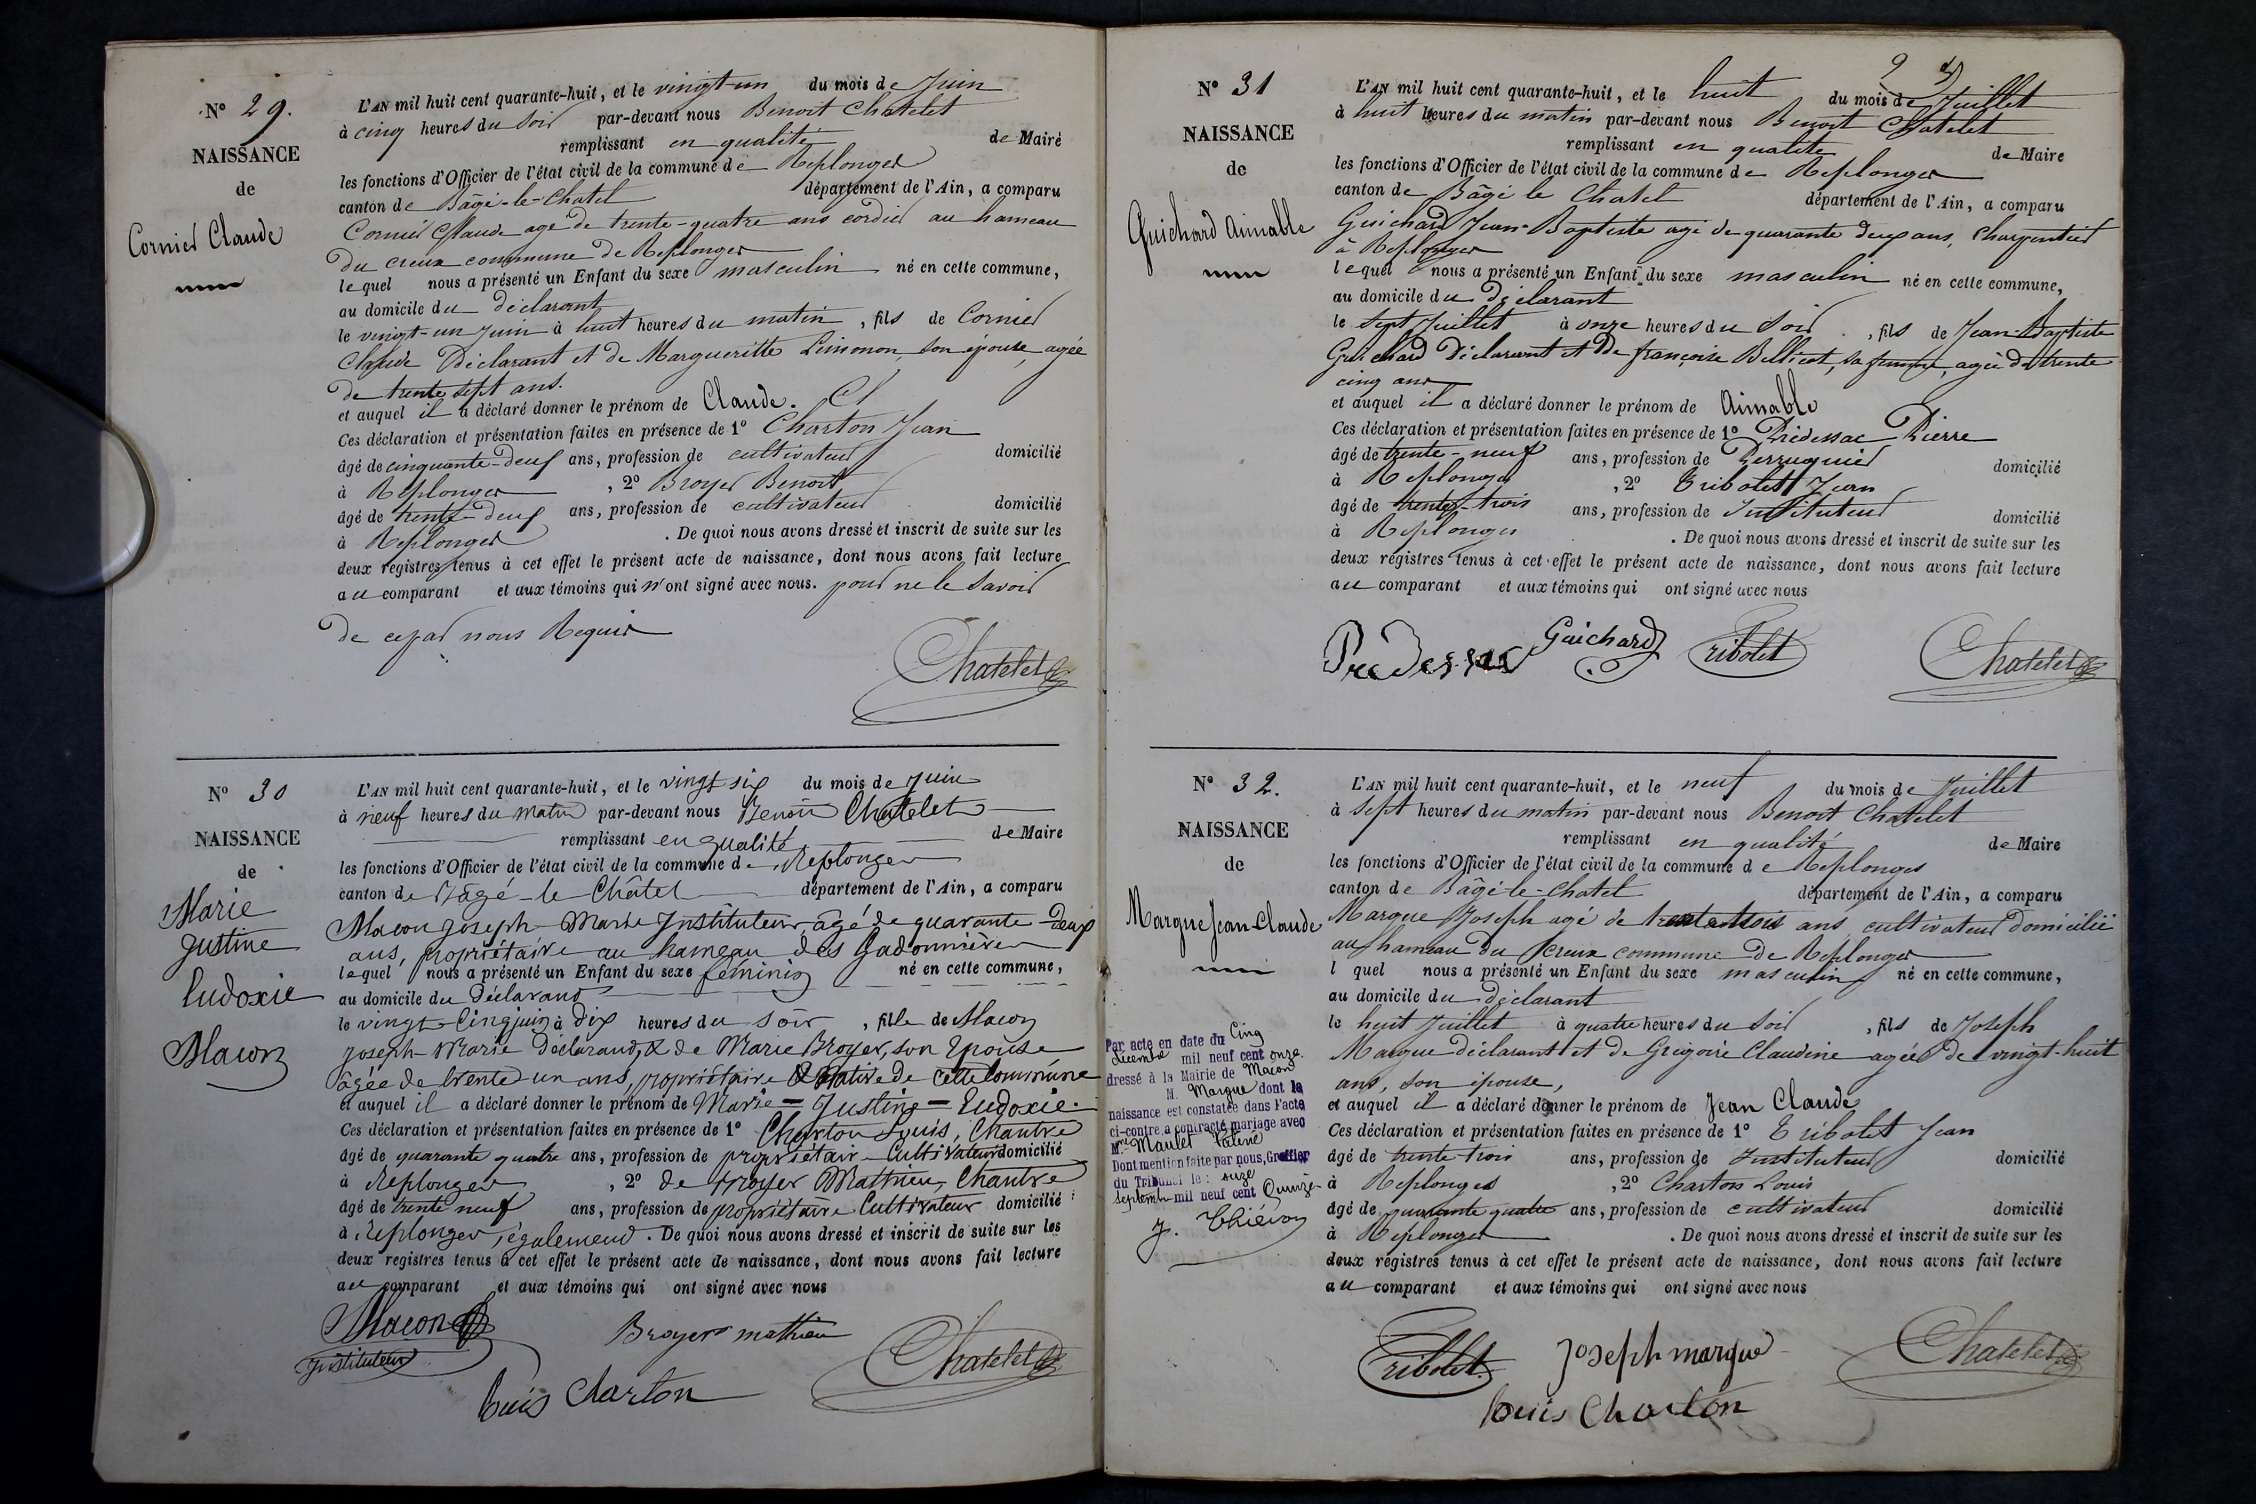 N° 29.
NAISSANCE
de
Cornier Claude
L'AN mil huit cent quarante-huit, et le vingt-un du mois de Juin
à cinq heures du soir par-devant nous Benoit Chatelet
remplissant en qualité de Maire
les fonctions d'Officier de l'état civil de la commune de Replonges
canton de Bâgé-le-Chatel département de l'Ain, a comparu
Cornier Claude agé de trente-quatre ans cordier au hameau
du creux commune de Replonges
lequel nous a présenté un Enfant du sexe masculin né en cette commune,
au domicile du déclarant
le vingt-un juin à huit heures du matin, fils de Cornier
Claude Déclarant et de Margueritte Limonon, son épouse, agée
de trente sept ans.
et auquel il a déclaré donner le prénom de Claude.
Ces déclaration et présentation faites en présence de 1° Charton Jean
âgé de cinquante-deux ans, profession de cultivateur domicilié
à Replonges, 2° Broyer Benoit
âgé de trente-deux ans, profession de cultivateur domicilié
à Replonges. De quoi nous avons dressé et inscrit de suite sur les
deux registres tenus à cet effet le présent acte de naissance, dont nous avons fait lecture
au comparant et aux témoins qui n'ont signé avec nous. pour ne le savoir
de ce par nous Requis
Chatelet
N° 30
NAISSANCE
de
Marie
Justine
Eudoxie
Macon
L'AN mil huit cent quarante-huit, et le vingt six du mois de Juin
à neuf heures du matin par-devant nous Benoit Chatelet
remplissant en qualité de Maire
les fonctions d'Officier de l'état civil de la commune de Replonges
canton de Bâgé-le-Châtel département de l'Ain, a comparu
Macon Joseph-Marie Instituteur, âgé de quarante-deux
ans, propriétaire au hameau des Gadonnières
lequel nous a présenté un Enfant du sexe féminin né en cette commune,
au domicile du déclarand
le vingt-cinq juin à dix heures du soir, fille de Macon
Joseph-Marie déclarand, & de Marie Broyer, son Epouse
âgée de trente-un ans, propriétaire & Native de cette Commune
et auquel il a déclaré donner le prénom de Marie=Justine=Eudoxie.
Ces déclaration et présentation faites en présence de 1° Charton Louis, Chantre
âgé de quarante quatre ans, profession de propriétair-Cultivateur domicilié
à Replonges, 2° de Broyer Mathieu, Chantre
âgé de trente neuf ans, profession de propriétaire Cultivateur domicilié
à Replonges, égalemend. De quoi nous avons dressé et inscrit de suite sur les
deux registres tenus à cet effet le présent acte de naissance, dont nous avons fait lecture
au comparant et aux témoins qui ont signé avec nous
Macon
Instituteur
Broyer mathieu
Chatelet
Louis Charton
N° 31
NAISSANCE
de
Guichard Aimable
L'AN mil huit cent quarante-huit, et le huit du mois de Juillet
à huit heures du matin par-devant nous Benoit Chatelet
remplissant en qualité de Maire
les fonctions d'Officier de l'état civil de la commune de Replonges
canton de Bâgé le Chatel département de l'Ain, a comparu
Guichard Jean-Baptiste agé de quarante deux ans, Charpentier
à Replonges
lequel nous a présenté un Enfant du sexe masculin né en cette commune,
au domicile du déclarant
le sept Juillet à onze heures du soir, fils de Jean-Baptiste
Guichard Déclarant et de françoise Bellicot, sa femme, agée de trente
cinq ans
et auquel il a déclaré donner le prénom de Aimable
Ces déclaration et présentation faites en présence de 1° Prédessac Pierre
âgé de trente-neuf ans, profession de Perruquier domicilié
à Replonges, 2° Tribolet Jean
âgé de trente-trois ans, profession de Instituteur domicilié
à Replonges. De quoi nous avons dressé et inscrit de suite sur les
deux registres tenus à cet effet le présent acte de naissance, dont nous avons fait lecture
au comparant et aux témoins qui ont signé avec nous
Guichard
Tribolet
Chatelet
N° 32.
NAISSANCE
de
Margue Jean Claude
Par acte en date du Cinq
Décembre mil neuf cent onze
dressé à la Mairie de Macon
M. Margue dont la
naissance est constatée dans l'acte
ci-contre a contracté mariage avec
Mme Maulet Valérie
Dont mention faite par nous, Greffier
du Tribunal le: onze
Septembre mil neuf cent Quinze
L'AN mil huit cent quarante-huit, et le neuf du mois de Juillet
à sept heures du matin par-devant nous Benoit Chatelet
remplissant en qualité de Maire
les fonctions d'Officier de l'état civil de la commune de Replonges
canton de Bâgé-le-Chatel département de l'Ain, a comparu
Margue Joseph agé de trente trois ans cultivateur domicilié
au hameau du Creux commune de Replonges
l quel nous a présenté un Enfant du sexe masculin né en cette commune,
au domicile du déclarant
le huit Juillet à quatre heures du soir, fils de Joseph
Margue déclarant et de Grégoire Claudine agée de vingt-huit
ans, son épouse,
et auquel il a déclaré donner le prénom de Jean Claude
Ces déclaration et présentation faites en présence de 1° Tribolet Jean
âgé de trente-trois ans, profession de Instituteur domicilié
à Replonges, 2° Charton Louis
âgé de quarante quatre ans, profession de cultivateur domicilié
à Replonges. De quoi nous avons dressé et inscrit de suite sur les
deux registres tenus à cet effet le présent acte de naissance, dont nous avons fait lecture
au comparant et aux témoins qui ont signé avec nous
Tribolet
Joseph margue
Chatelet
Louis Charton